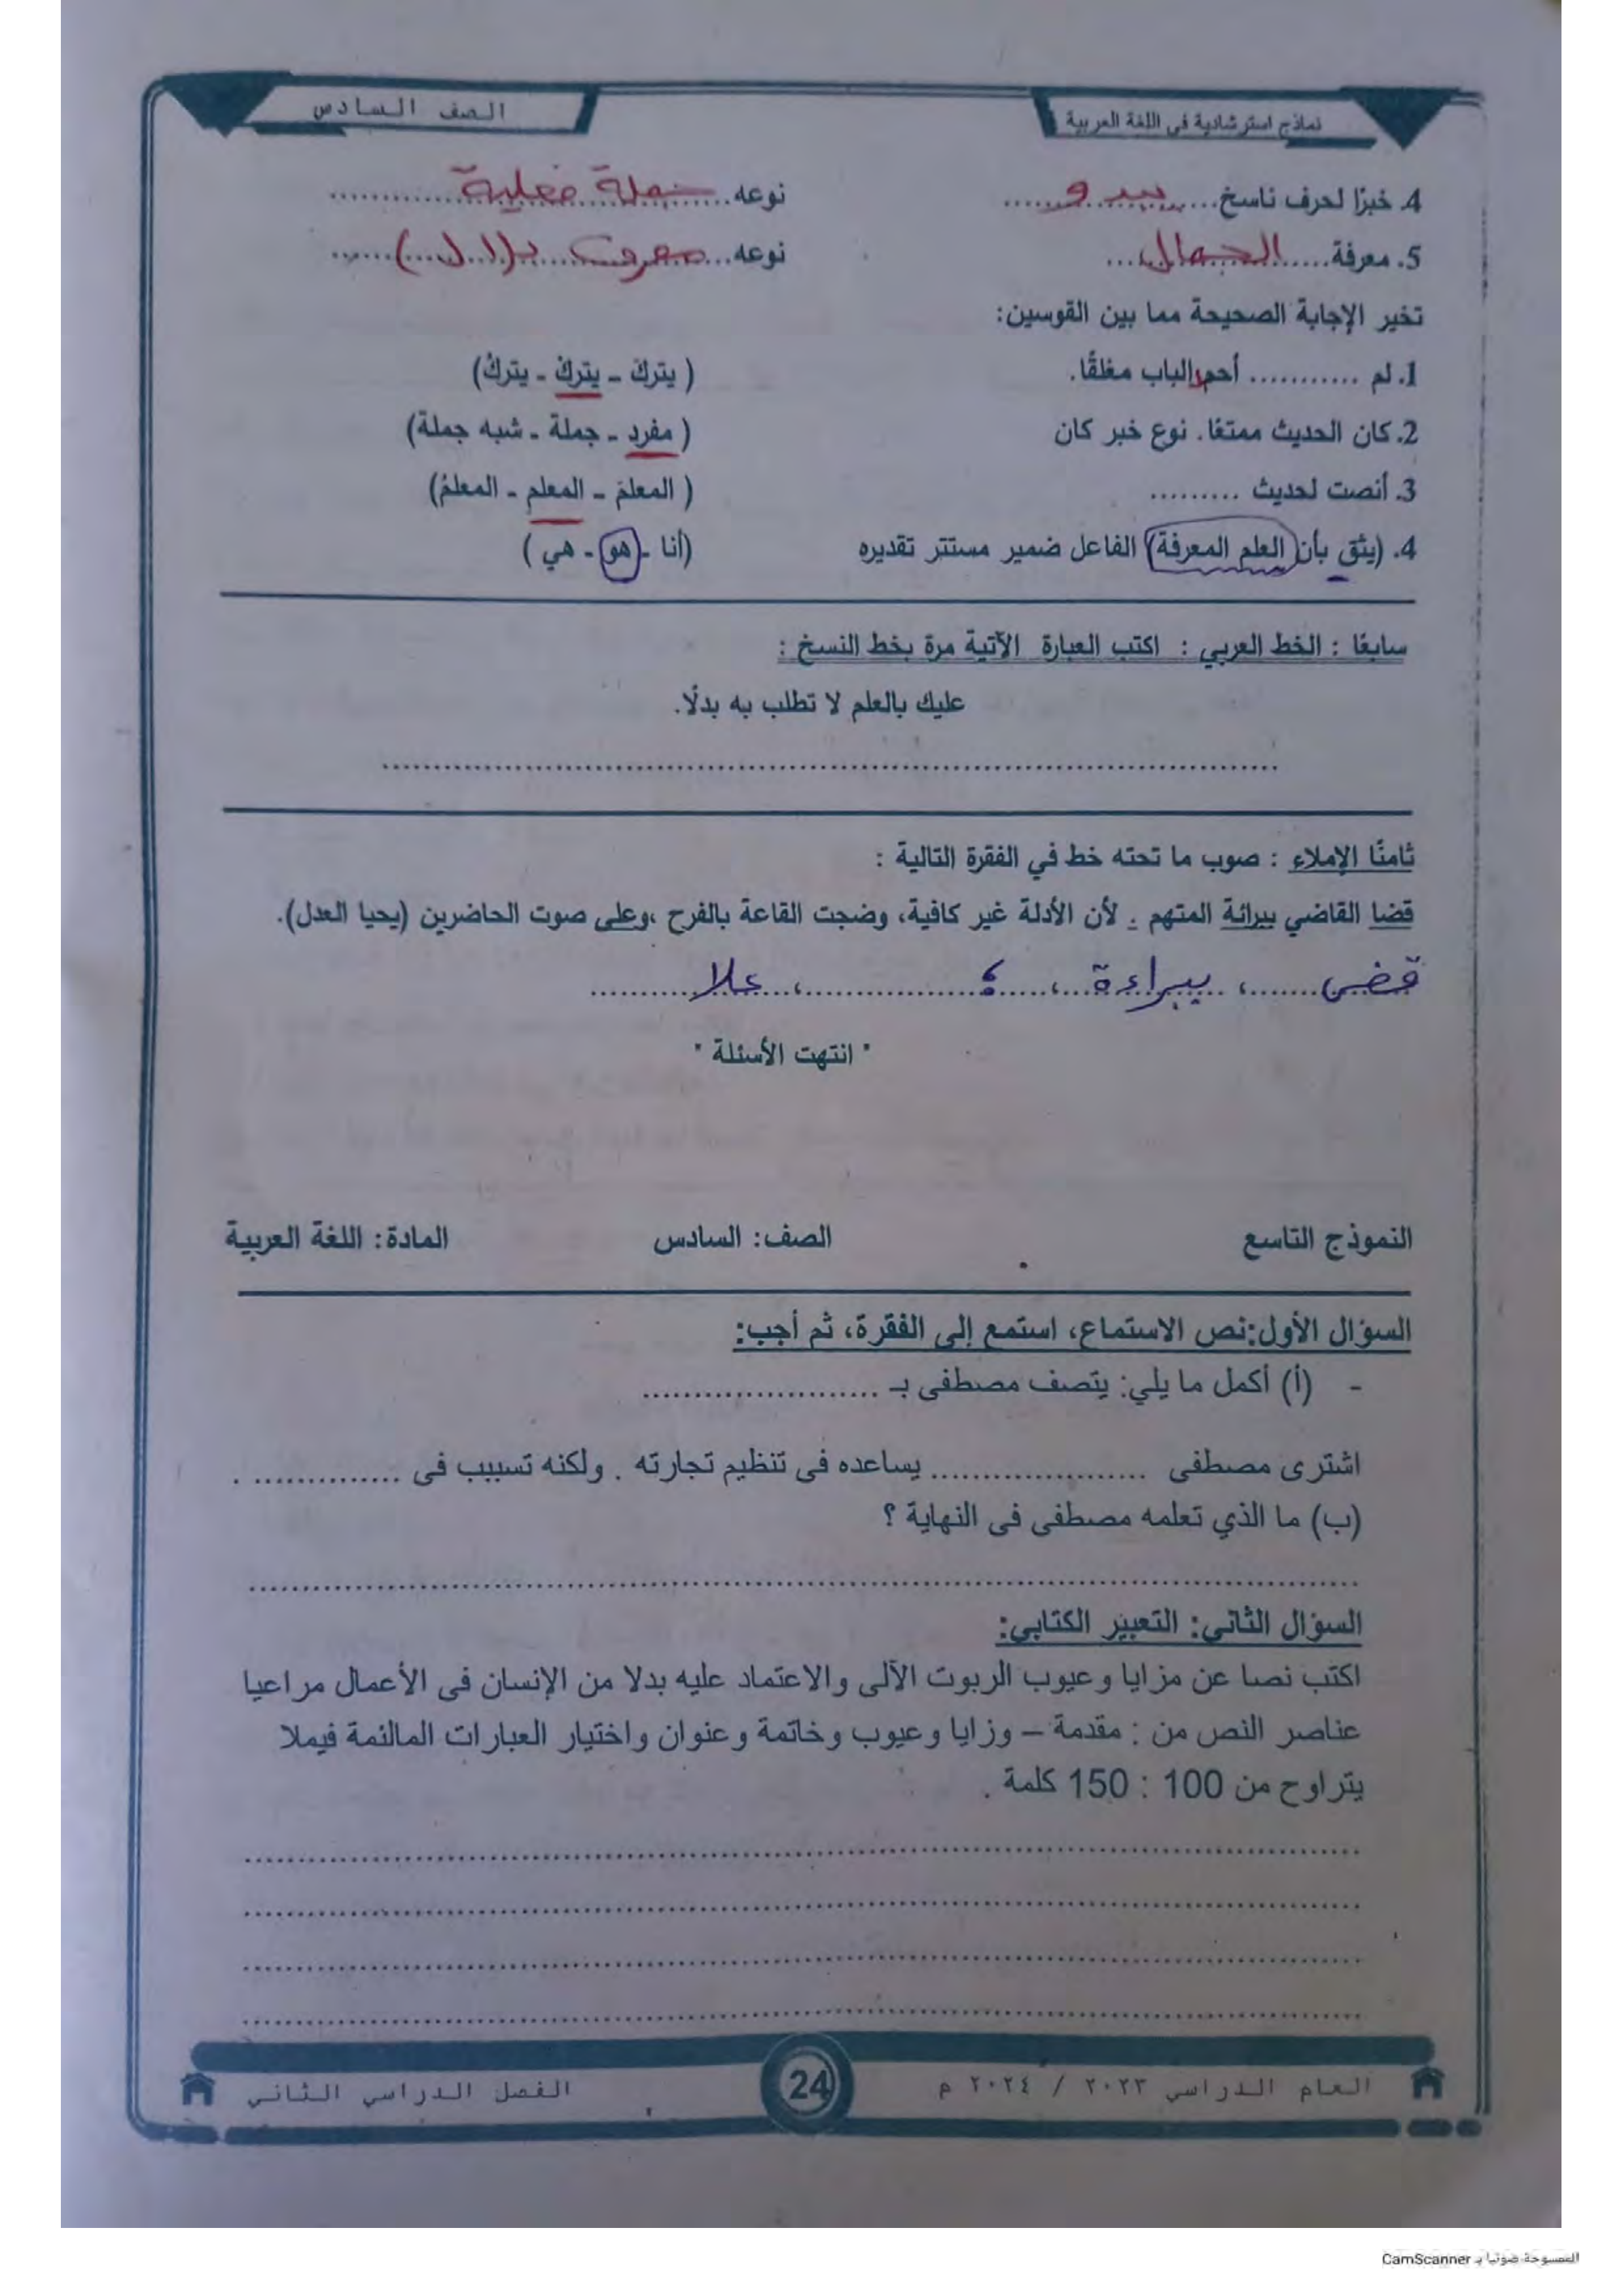 نماذج استرشادية فى اللغة العربية
الصف السادس
4. خبرًا لحرف ناسخ..... يبدو ..... نوعه..... جملة فعلية .....
5. معرفة..... الجمال ..... نوعه..... معرف بـ(ال) .....
تخير الإجابة الصحيحة مما بين القوسين:
1. لم ........... أحمد الباب مغلقًا. ( يتركَ - يتركْ - يتركُ)
2. كان الحديث ممتعًا. نوع خبر كان ( مفرد - جملة - شبه جملة)
3. أنصت لحديث ......... ( المعلمَ - المعلمِ - المعلمُ)
4. (يثق بأن العلم المعرفة) الفاعل ضمير مستتر تقديره (أنا - هو - هي )
سابعًا : الخط العربي : اكتب العبارة الآتية مرة بخط النسخ :
عليك بالعلم لا تطلب به بدلًا.
ثامنًا الإملاء : صوب ما تحته خط في الفقرة التالية :
قضا القاضي ببرائة المتهم . لأن الأدلة غير كافية، وضجت القاعة بالفرح ،وعلى صوت الحاضرين (يحيا العدل).
قضى ......، ببراءة ....، ....؛ ..........، علا ..........
" انتهت الأسئلة "
النموذج التاسع الصف: السادس المادة: اللغة العربية
السؤال الأول:نص الاستماع، استمع إلى الفقرة، ثم أجب:
- (أ) أكمل ما يلي: يتصف مصطفى بـ .......................
اشترى مصطفى ..................... يساعده فى تنظيم تجارته . ولكنه تسببب فى .............. .
(ب) ما الذي تعلمه مصطفى فى النهاية ؟
السؤال الثاني: التعبير الكتابي:
اكتب نصا عن مزايا وعيوب الربوت الآلى والاعتماد عليه بدلا من الإنسان فى الأعمال مراعيا
عناصر النص من : مقدمة – وزايا وعيوب وخاتمة وعنوان واختيار العبارات المالئمة فيملا
يتراوح من 100 : 150 كلمة .
العام الدراسي ٢٠٢٣ / ٢٠٢٤ م
24
الفصل الدراسي الثاني
الممسوحة ضوئيا بـ CamScanner